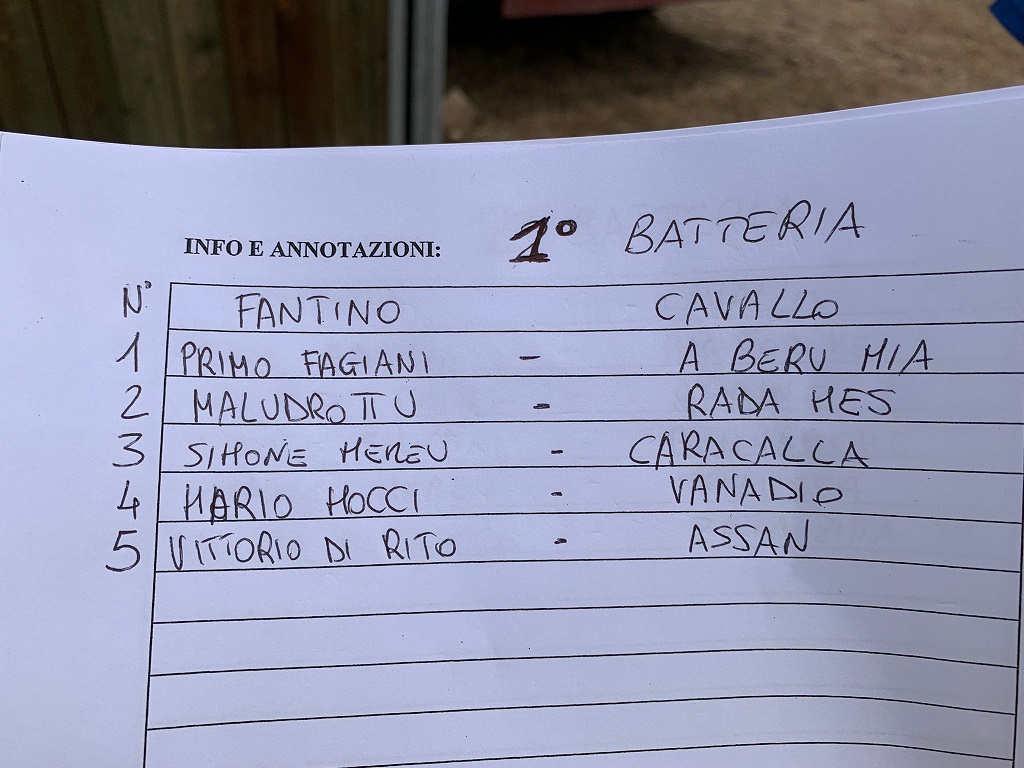 INFO E ANNOTAZIONI: 1° BATTERIA
N° FANTINO CAVALLO
1 PRIMO FAGIANI - A BERU MIA
2 MALUDROTTU - RADA MES
3 SIMONE MEREU - CARACALLA
4 MARIO MOCCI - VANADIO
5 VITTORIO DI RITO - ASSAN